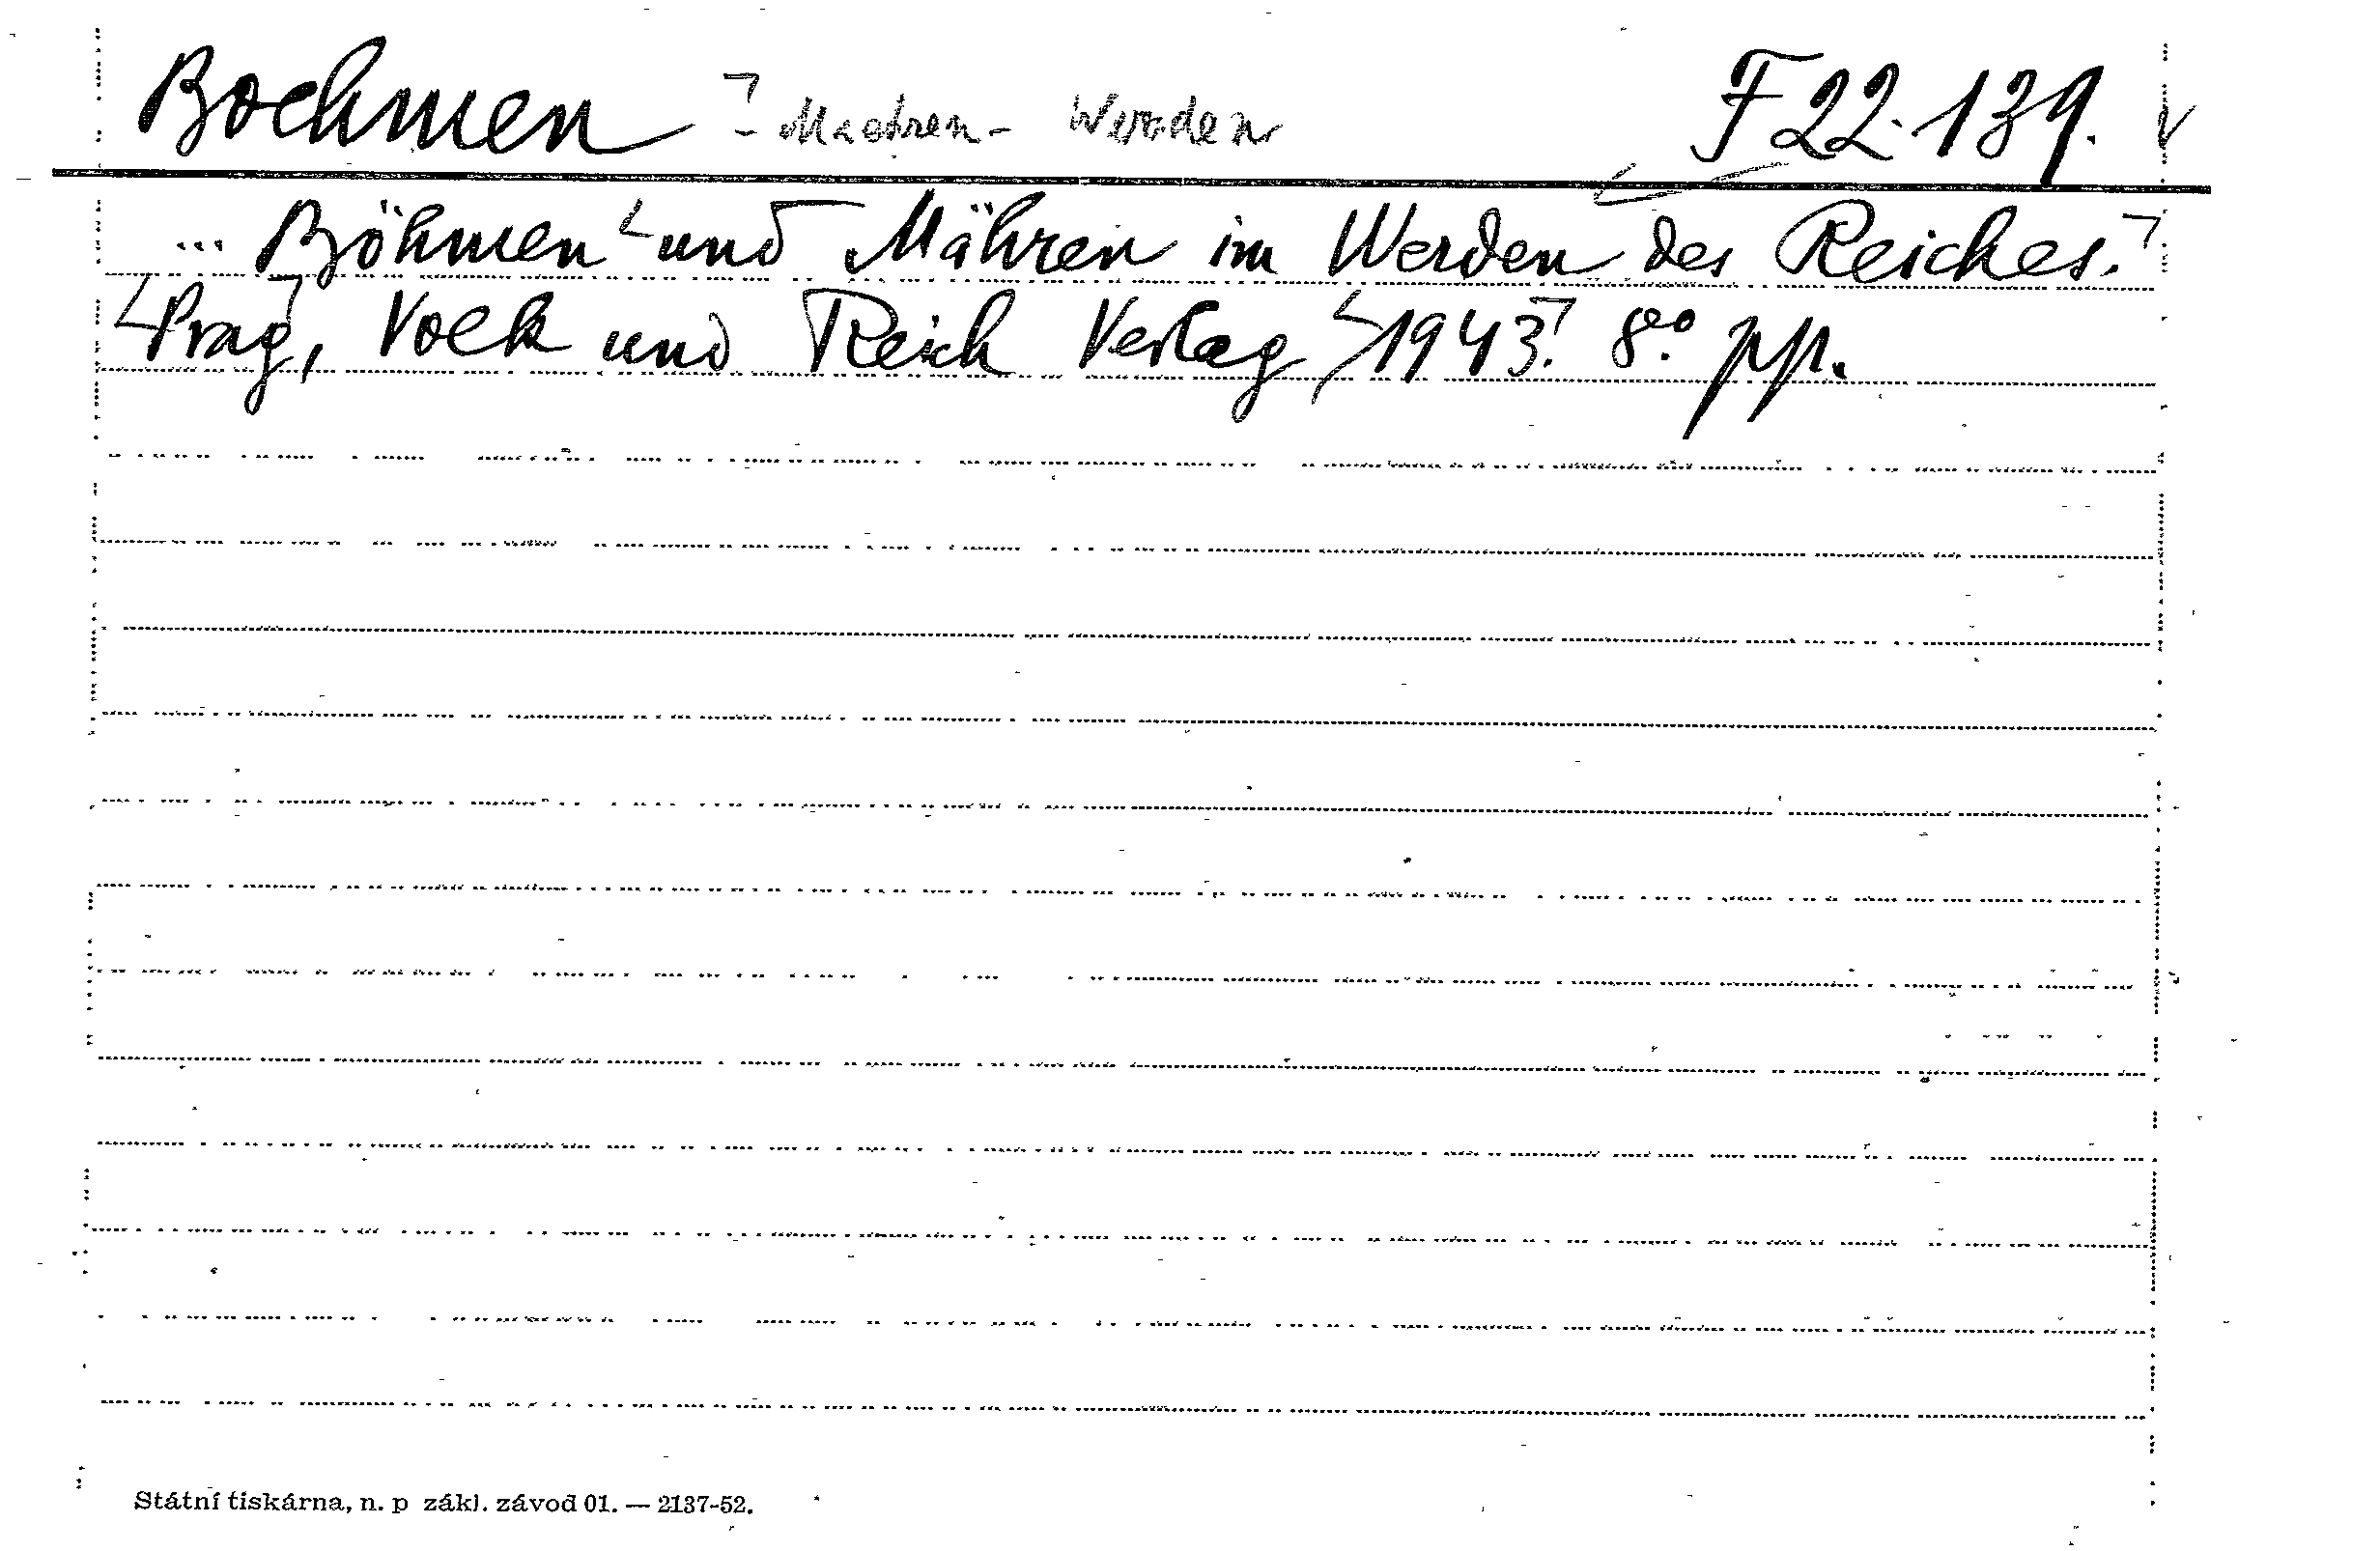 Boehmen - Maehren - Werden F 22.139. V
... Böhmen und Mähren im Werden des Reiches.
Prag, Volk und Reich Verlag, 1943. 8º pp.
Státní tiskárna, n. p zákl. závod 01. — 2137-52.